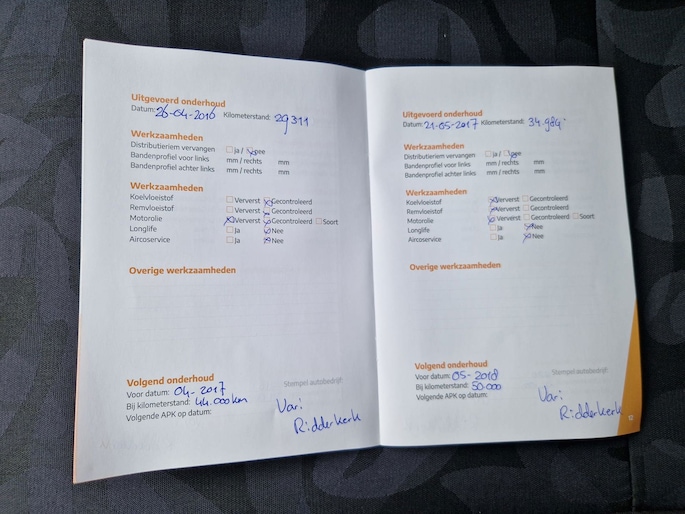 Uitgevoerd onderhoud
Datum: 26-04-2016 Kilometerstand: 29311
Werkzaamheden
Distributieriem vervangen ja / nee
Bandenprofiel voor links mm / rechts mm
Bandenprofiel achter links mm / rechts mm
Werkzaamheden
Koelvloeistof Ververst Gecontroleerd
Remvloeistof Ververst Gecontroleerd
Motorolie Ververst Gecontroleerd Soort
Longlife Ja Nee
Aircoservice Ja Nee
Overige werkzaamheden
Volgend onderhoud
Stempel autobedrijf:
Voor datum: 04-2017
Bij kilometerstand: 44.000km
Volgende APK op datum:
Vari
Ridderkerk
Uitgevoerd onderhoud
Datum: 21-05-2017 Kilometerstand: 34.984
Werkzaamheden
Distributieriem vervangen ja / nee
Bandenprofiel voor links mm / rechts mm
Bandenprofiel achter links mm / rechts mm
Werkzaamheden
Koelvloeistof Ververst Gecontroleerd
Remvloeistof Ververst Gecontroleerd
Motorolie Ververst Gecontroleerd Soort
Longlife Ja Nee
Aircoservice Ja Nee
Overige werkzaamheden
Volgend onderhoud
Stempel autobedrijf:
Voor datum: 05-2018
Bij kilometerstand: 50.000
Volgende APK op datum:
Vari
Ridderkerk
12